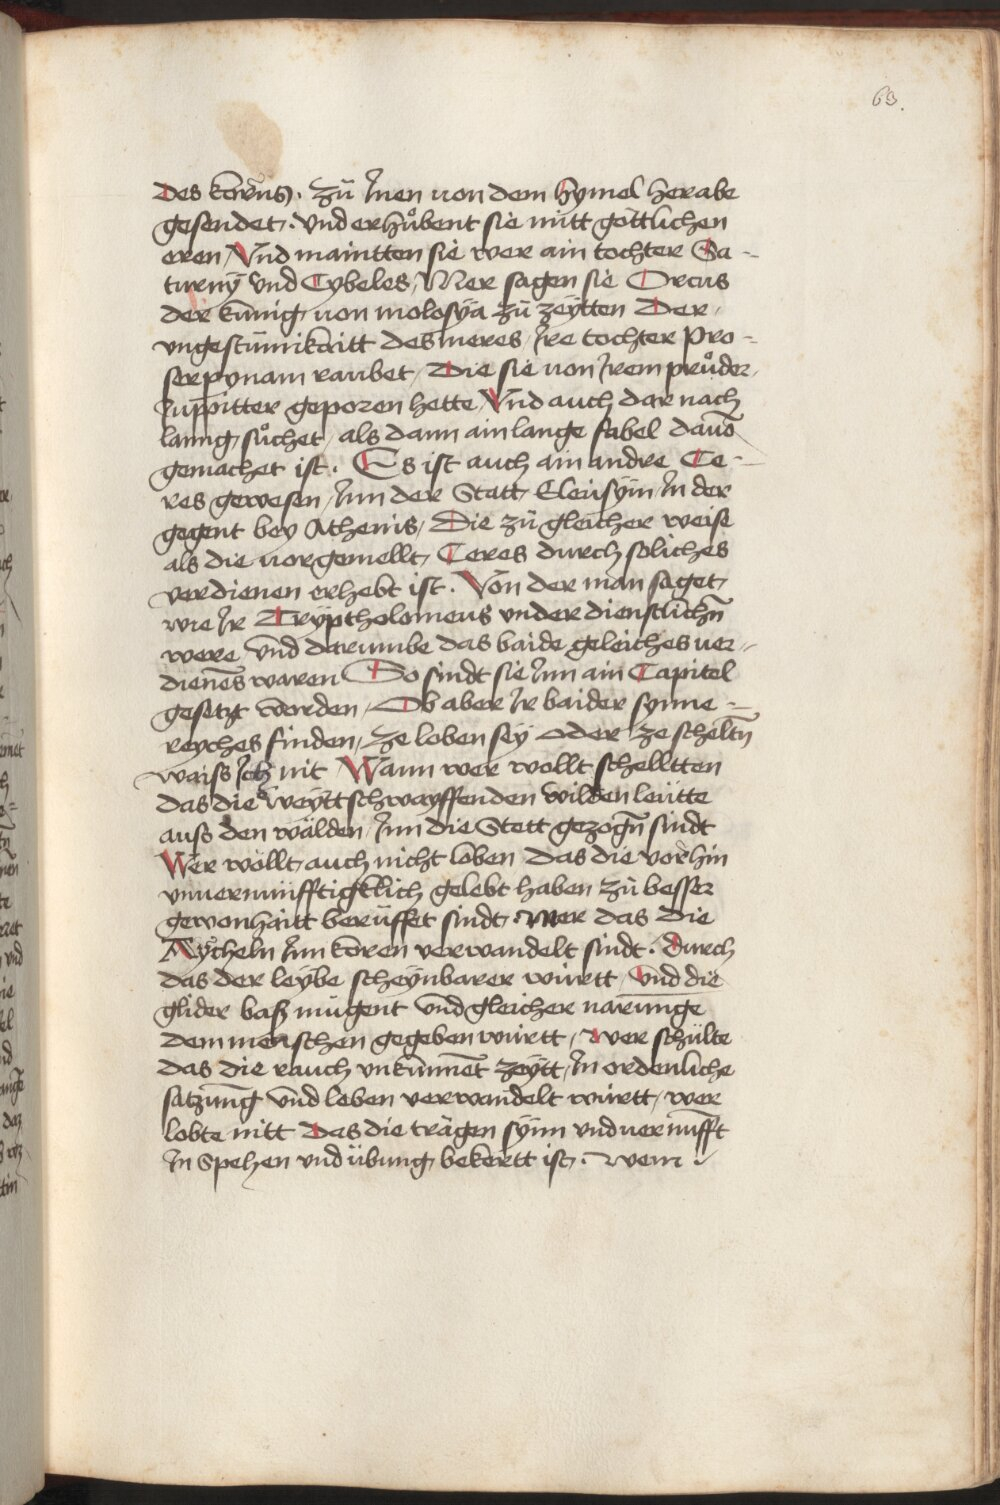 63.
des korns. zů Inen von dem hymel herabe
gesendet. vnd erhůbent sie mitt göttlichen
eren / Vnd maintten sie wer ain tochter Sa-
turnÿ vnd Cybeles / Mer sagen sie Orcus
der kunig von molosÿa zů zeÿtten Der
vngestümikaitt des meres / Ire tochter Pro-
serpynam raubet / Die sie von Irem průder
Iuppitter geporen hette / Vnd auch dar nach
lanng sůchet / als dann ain lange fabel dauõ
gemachet ist. Es ist auch ain andre Ce-
res gewesen / Inn der Statt Eleusÿin / In der
gegent bey Athenis / Die zů gleicher weise
als die vorgemellt / Ceres durch soliches
verdienen erhebt ist. Von der man saget
wie Ir Trÿptholomeus vnder dienstlichñ
were vnd darumbe das baide geleiches ver-
dienẽs waren So sindt sie Inn ain Capitel
gesetzt worden / Ob aber Ir baider synne-
reyches finden / ze loben seÿ oder ze schelt̃n
waiss Ich nit / Wann wer wollt schelltten
das die weÿttschwayffenden wilden leütte
auss den wälden / Inn die Stett gezog̃n sindt
Wer wöllt auch nicht loben das die vorhin
vnuernünfftigklich gelebt haben zů besser
gewonhaitt berüffet sindt. Wer das die
Aÿcheln Inn koren verwandelt sindt. durch
das der leÿbe scheÿnbarer württ / Vnd die
glider baß mügent vnd gleicher narunge
dem menschen gegeben württ / wer schülte
das die rauch vnkümet zeÿtt / In ordenliche
satzung vnd leben verwandelt württ / wer
lobte nitt Das die trägen sÿnn vnd vernufft
In Spehen vnd übung bekertt ist. wem